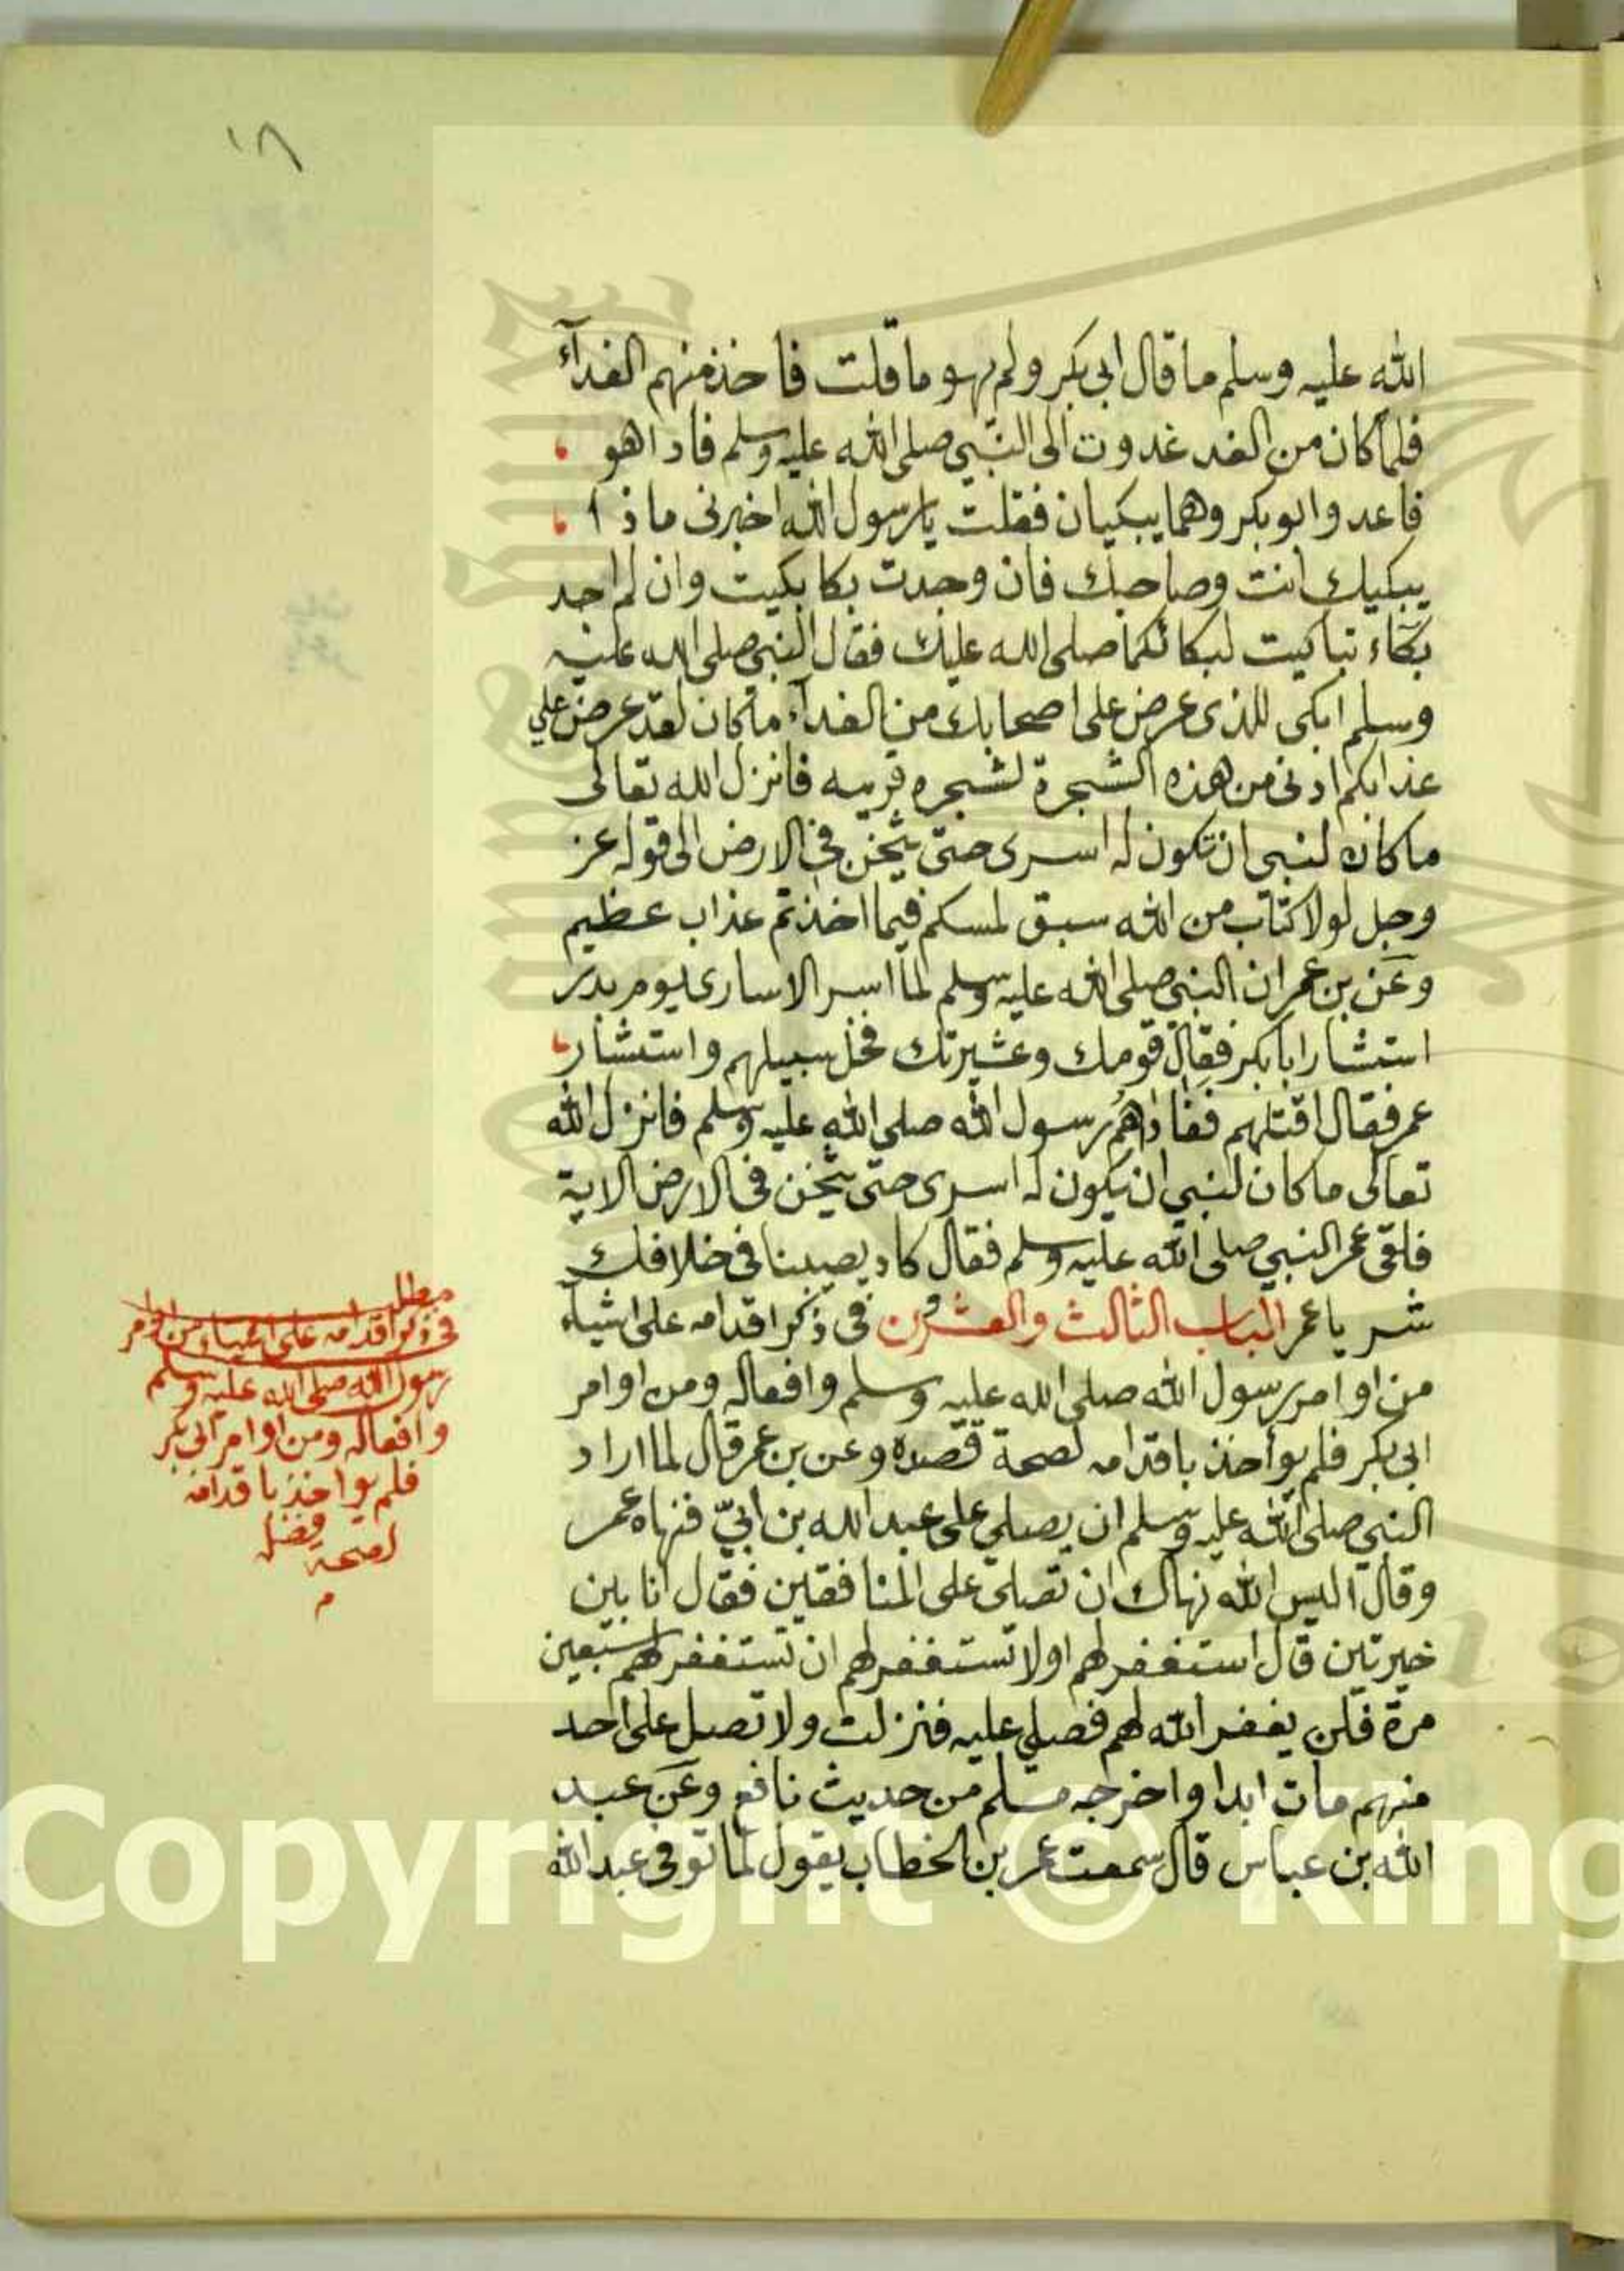 ١٨
الله عليه وسلم ما قال ابى بكر ولم يهو ما قلت فاخذ منهم الفدآء
فلما كان من الغد غدوت الى النبي صلى الله عليه وسلم فاذا هو
قاعد وابو بكر وهما يبكيان فقلت يا رسول الله اخبرنى ماذا
يبكيك انت وصاحبك فان وجدت بكا بكيت وان لم اجد
بكاء تباكيت لبكائكما صلى الله عليك فقال النبي صلى الله عليه
وسلم ابكى للذى عرض على اصحابك من الفدآء ما كان لقد عرض علي
عذابكم ادنى من هذه الشجرة لشجره قريبه فانزل الله تعالى
ما كان لنبى ان تكون له اسرى حتى يثخن فى الارض الى قوله عز
وجل لولا كتاب من الله سبق لمسكم فيما اخذتم عذاب عظيم
وعن بن عمر ان النبي صلى الله عليه وسلم لما اسر الاسارى يوم بدر
استشار ابا بكر فقال قومك وعشيرتك فخل سبيلهم واستشار
عمر فقال اقتلهم ففاداهم رسول الله صلى الله عليه وسلم فانزل الله
تعالى ما كان لنبي ان يكون له اسرى حتى يثخن فى الارض الاية
فلقى عمر النبي صلى الله عليه وسلم فقال كاد يصيبنا فى خلافك
شر يا عمر الباب الثالث والعشرون فى ذكر اقدامه على اشيآء
من اوامر رسول الله صلى الله عليه وسلم وافعاله ومن اوامر
ابى بكر فلم يواخذ باقدامه لصحة قصده وعن بن عمر قال لما اراد
النبي صلى الله عليه وسلم ان يصلي على عبد الله بن ابيّ فنهاه عمر
وقال اليس الله نهاك ان تصلى على المنافقين فقال انا بين
خيرتين قال استغفر لهم اولا تستغفر لهم ان تستغفر لهم سبعين
مرة فلن يغفر الله لهم فصلى عليه فنزلت ولا تصل على احد
منهم مات ابدا واخرجه مسلم من حديث نافع وعن عبد
الله بن عباس قال سمعت عمر بن الخطاب يقول لما توفى عبد الله
مطلب
فى ذكر اقدامه على اشياء من اوامر
رسول الله صلى الله عليه وسلم
وافعاله ومن اوامر ابى بكر
فلم يواخذ باقدامه
لصحة
م
Copyright © King